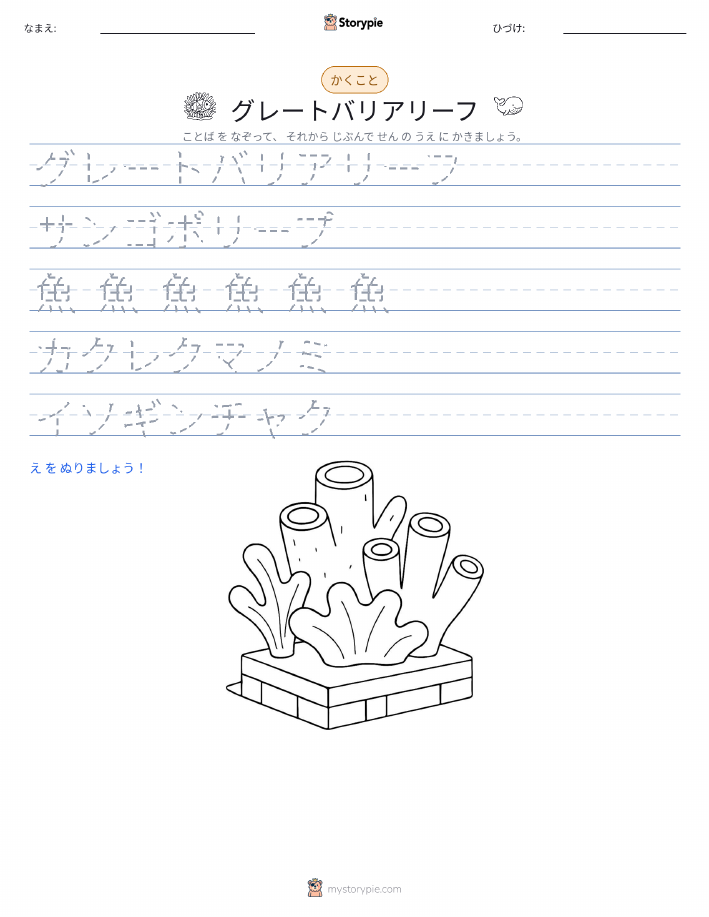 なまえ:
Storypie
ひづけ:
かくこと
グレートバリアリーフ
ことば を なぞって、 それから じぶんで せん の うえ に かきましょう。
グレートバリアリーフ
サンゴボリープ
魚 魚 魚 魚 魚 魚
カクレクマノミ
イソギンチャク
え を ぬりましょう！
mystorypie.com